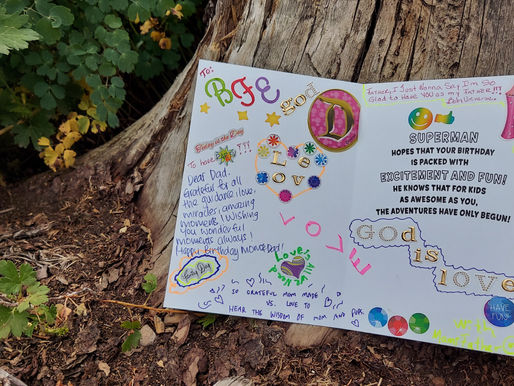 To:
BFE
god
D
Today is the Day
To have Fun!!!
Love
Dear Dad,
Grateful for all
the guidance, love,
miracles, amazing
moments, I wishing
you wonderful
moments always!
Happy birthday
Dad!
LOVE
Love's
SO GRATEFUL MOM MADE
VS. LOVE TO
HEAR THE WISDOM OF MOM AND
Father, I Just Wanna Say I'm So
Glad to Have YOU as my FATHER!!!
SUPERMAN
HOPES THAT YOUR BIRTHDAY
IS PACKED WITH
EXCITEMENT AND FUN!
HE KNOWS THAT FOR KIDS
AS AWESOME AS YOU,
THE ADVENTURES HAVE ONLY BEGUN!
God
is
love
HAVE
FUN